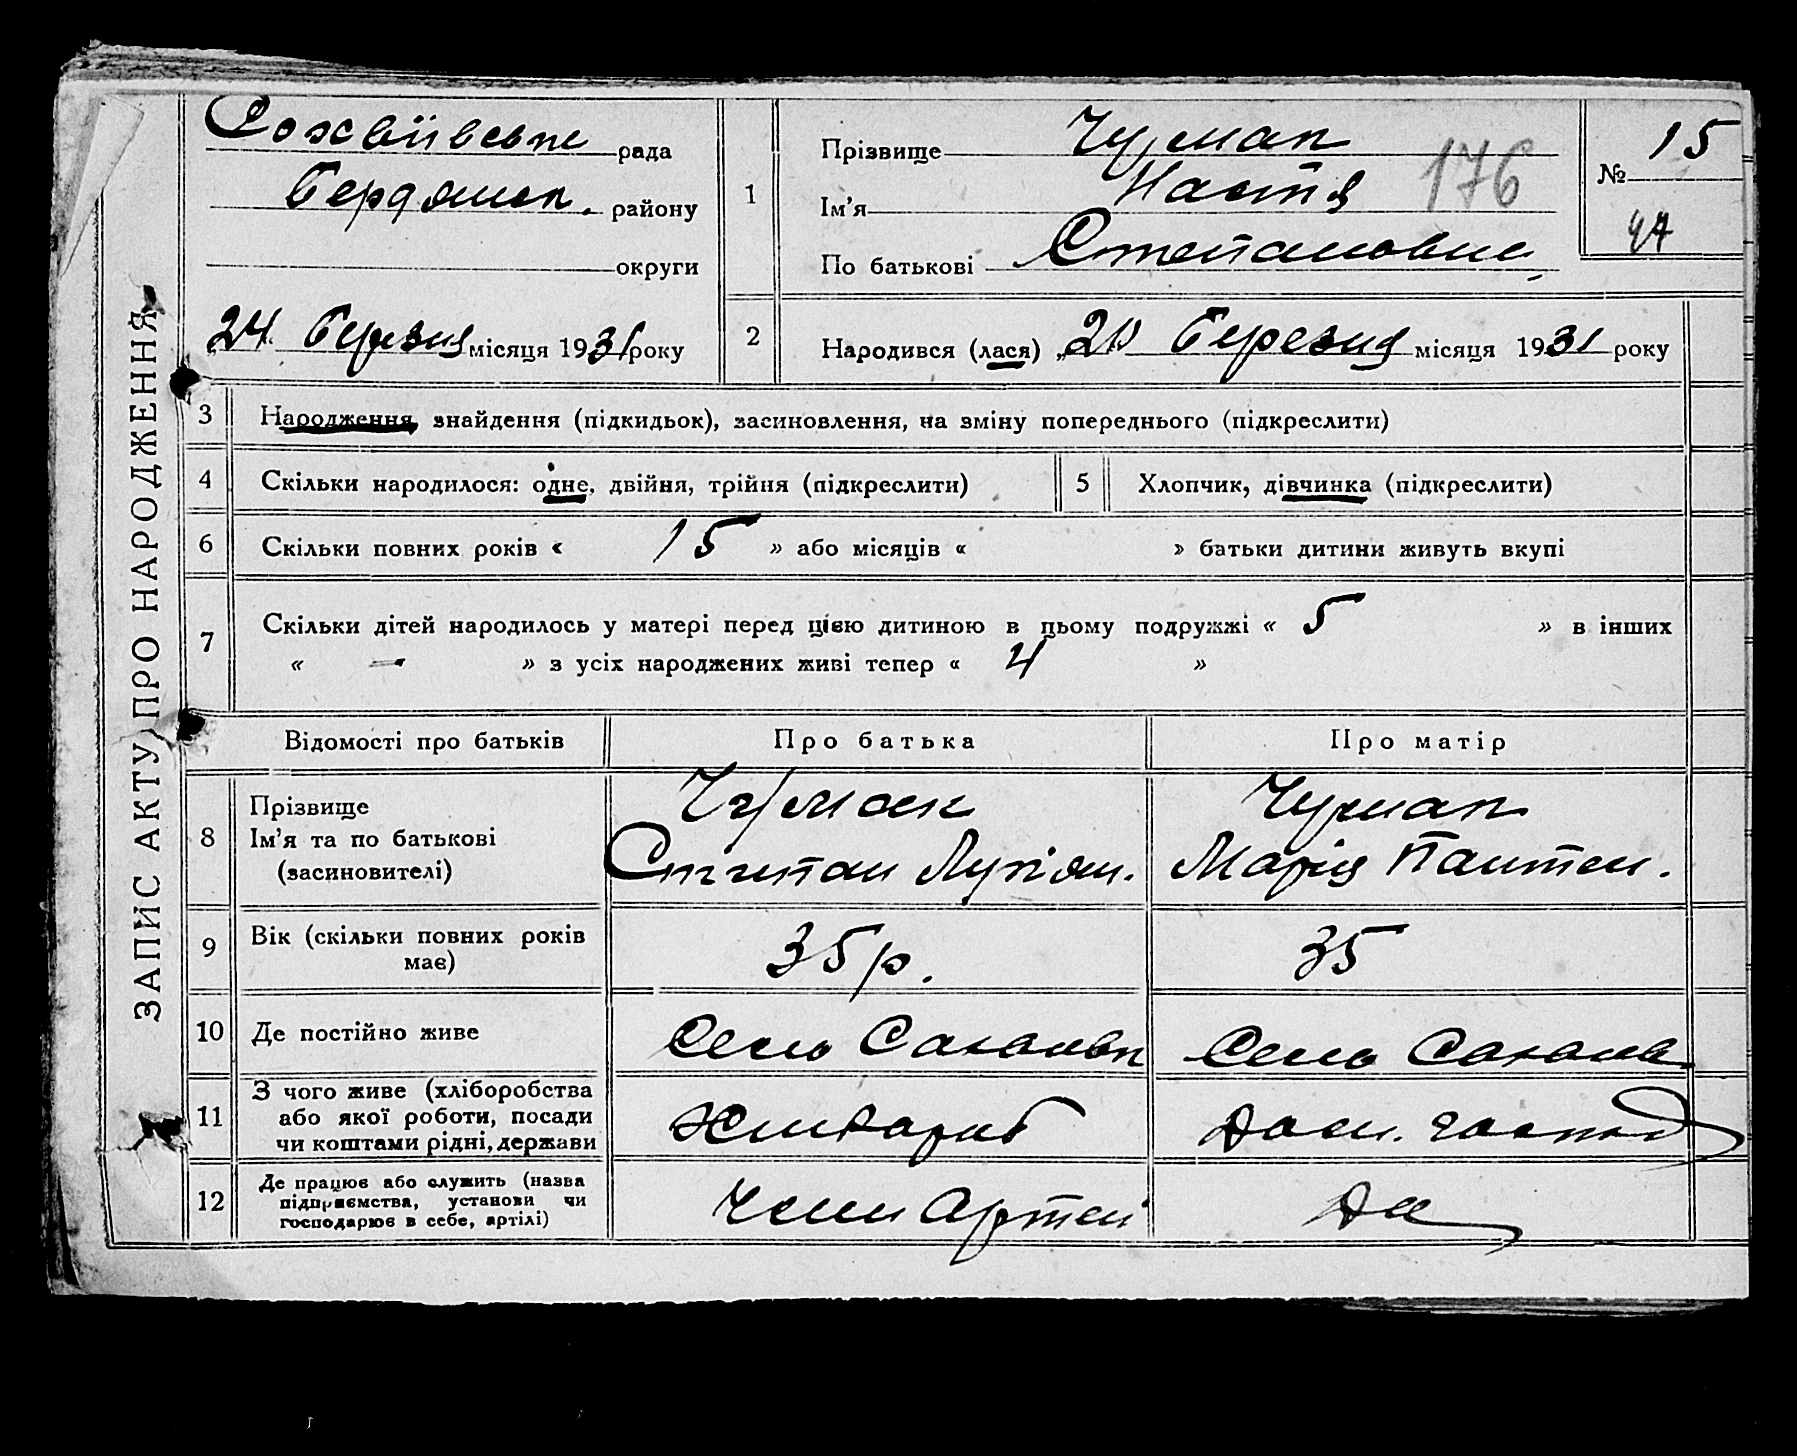 ЗАПИС АКТУ ПРО НАРОДЖЕННЯ
рада
Бердянск. району
округи
24 Березня місяця 1931 року
1
Прізвище Чумак
Ім'я Настя
176
По батькові Степановна
№ 15
2
Народився (лася) „20 Березня місяця 1931 року
3 Народження, знайдення (підкидьок), засиновлення, на зміну попереднього (підкреслити)
4 Скільки народилося: одне, двійня, трійня (підкреслити)
5 Хлопчик, дівчинка (підкреслити)
6 Скільки повних років « 15 » або місяців « » батьки дитини живуть вкупі
7 Скільки дітей народилось у матері перед цією дитиною в цьому подружжі « 5 » в інших
« — » з усіх народжених живі тепер « 4 »
Відомості про батьків Про батька Про матір
8 Прізвище
Ім'я та по батькові
(засиновителі)
Чумак
Степан
Чумак
Марія Пантел.
9 Вік (скільки повних років
має)
35 р.
35
10 Де постійно живе
Село
Село
11 З чого живе (хліборобства
або якої роботи, посади
чи коштами рідні, держави
Хлібороб
Дом. господ
12 Де працює або служить (назва
підприємства, установи чи
господарює в себе, артілі)
Член Артелі